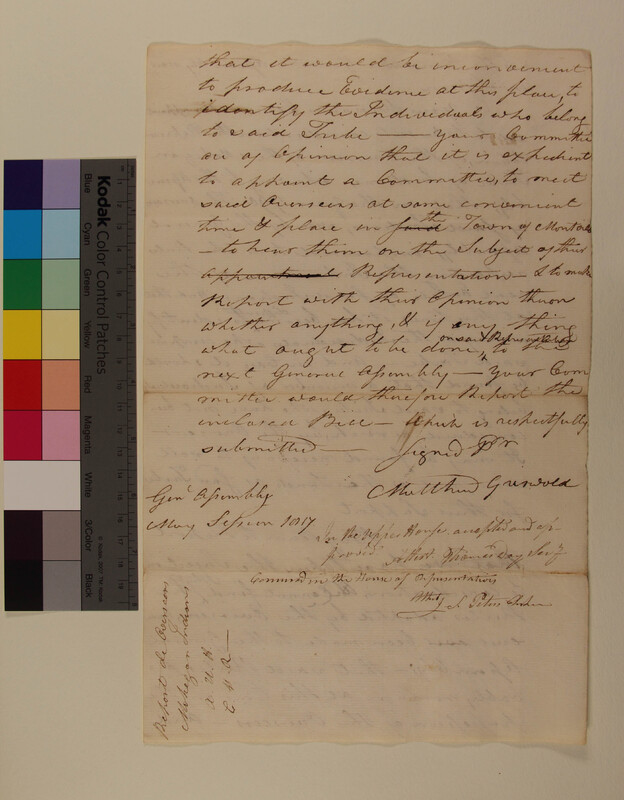 that it would be inconvenient
to produce Evidence at this place, to
identify the Individuals who belong
to said Tribe — your Committee
are of Opinion that it is expedient
to appoint a Committee, to meet
said Overseers at some convenient
time & place in the Town of Montville
— to hear them on the Subject of their
appointment Representation — & to make
Report with their Opinion thereon
whether anything, & if any thing
what ought to be done, on said Representation to the
next General Assembly — your Com
mittee would therefore Report the
inclosed Bill — which is respectfully
submitted — Signed Pr
Matthew Griswold
Genl Assembly
May Session 1817
In the Upper House, accepted and ap-
proved. Attest Thomas Day Secy
Concurred in the House of Representatives
Attest J Peters Clerk
Report de Overseers
Mohegan Indians
A U H
C H R —
Kodak Color Control Patches
Blue
Cyan
Green
Yellow
Red
Magenta
White
3/Color
Black